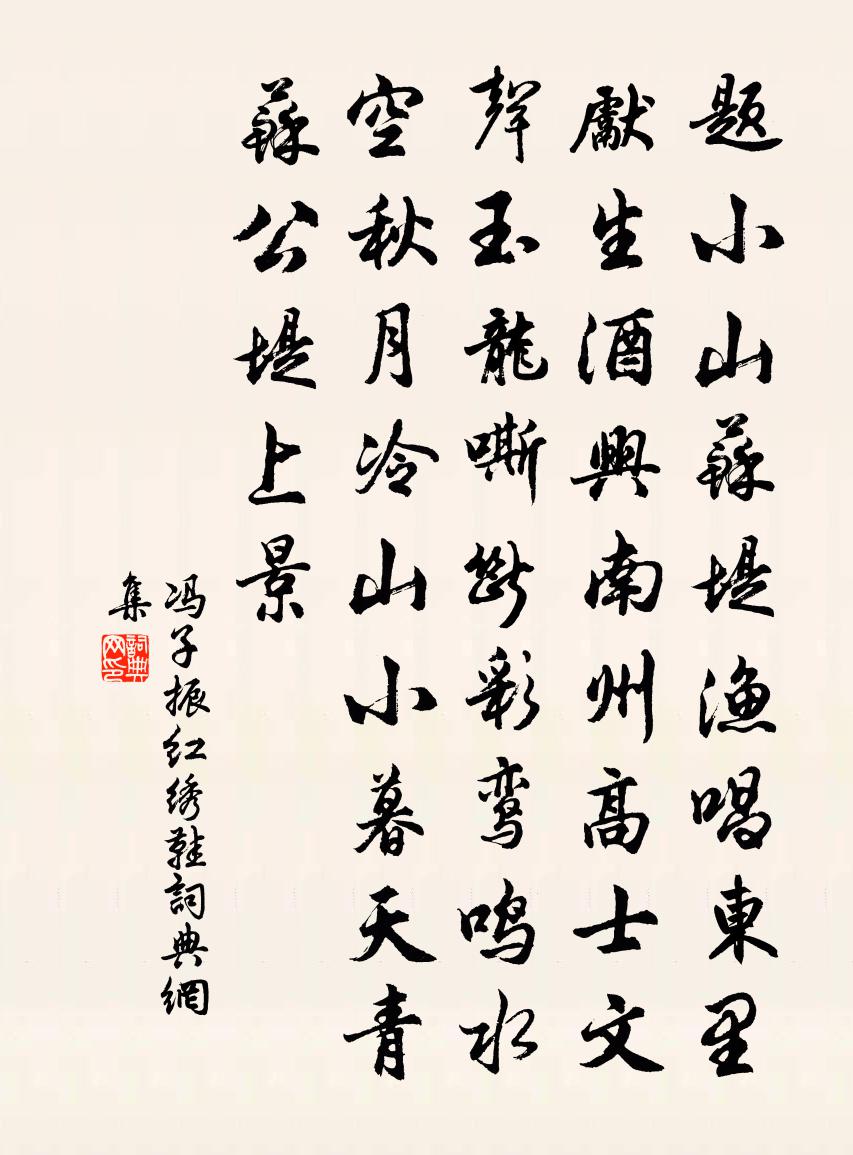 题小山蘇堤渔唱東里
獻生酒興南州高士文
聲玉龍嘶斷彩鸾鸣水
空秋月冷山小暮天青
蘇公堤上景
冯子振红绣鞋詞典網
集
詞典網印